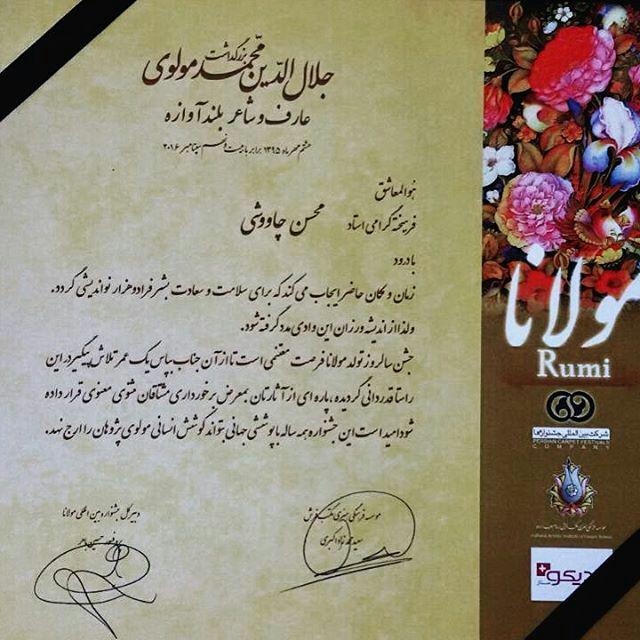 بزرگداشت
جلال الدّین محمّد مولوی
عارف و شاعر بلند آوازه
هشتم مهرماه ۱۳۹۵ برابر با بیست و نهم سپتامبر ۲۰۱۶
هوالمعاشق
فرهیختهٔ گرامی استاد محسن چاووشی
با درود
زمان و مکان حاضر ایجاب می کند که برای سلامت و سعادت بشر فرادو هزار نو اندیشی گردد.
ولذا از اندیشه ورزان این وادی مدد گرفته شود.
جشن سالروز تولد مولانا فرصت مغتنمی است تا از آن جناب بپاس یک عمر تلاش پیگیر در این
راستا قدردانی گردیده، پاره ای از آثارتان بمعرض برخورداری مشتاقان مثنوی معنوی قرار داده
شود امید است این جشنواره همه ساله با پوششی جهانی بتواند کوشش انسانی مولوی پژوهان را ارج نهد.
موسسه فرهنگی هنری
دبیر کل جشنواره بین المللی مولانا
مولانا
Rumi
شرکت بین المللی جشنواره‌ها
PERSIAN CARPET FESTIVALS
COMPANY
دیکو